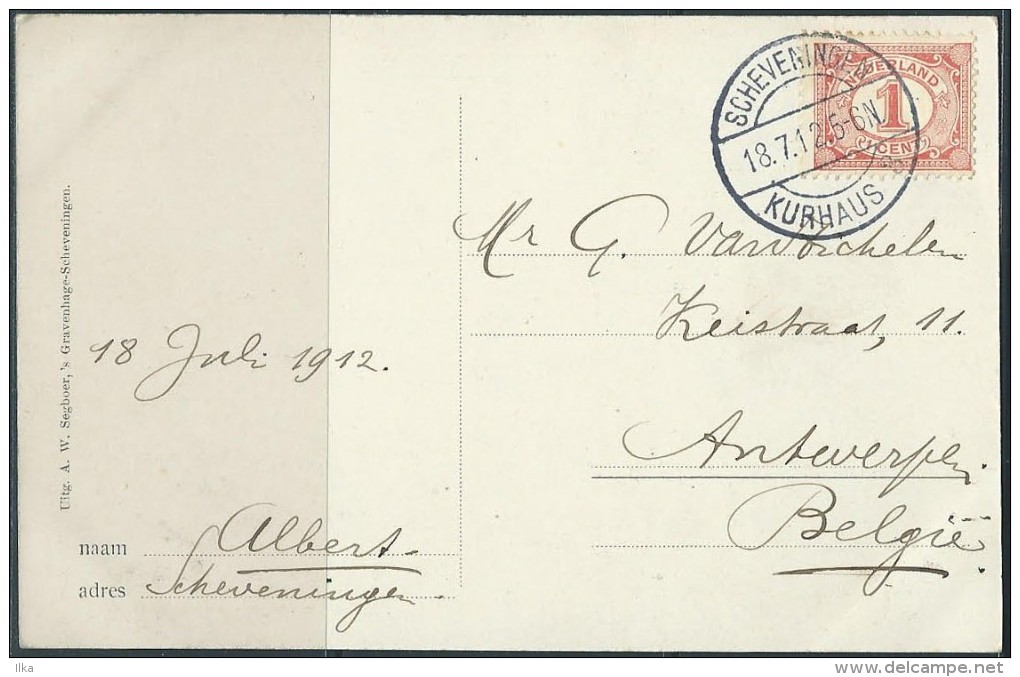 Uitg. A. W. Segboer, 's Gravenhage-Scheveningen.
18 Juli 1912.
naam Albert
adres Scheveningen
SCHEVENINGEN
18.7.12.5-6N
KURHAUS
NEDERLAND
1
CENT
Mr G. Van
Keistraat, 11.
Antwerpen
België
Ilka
www.delcampe.net